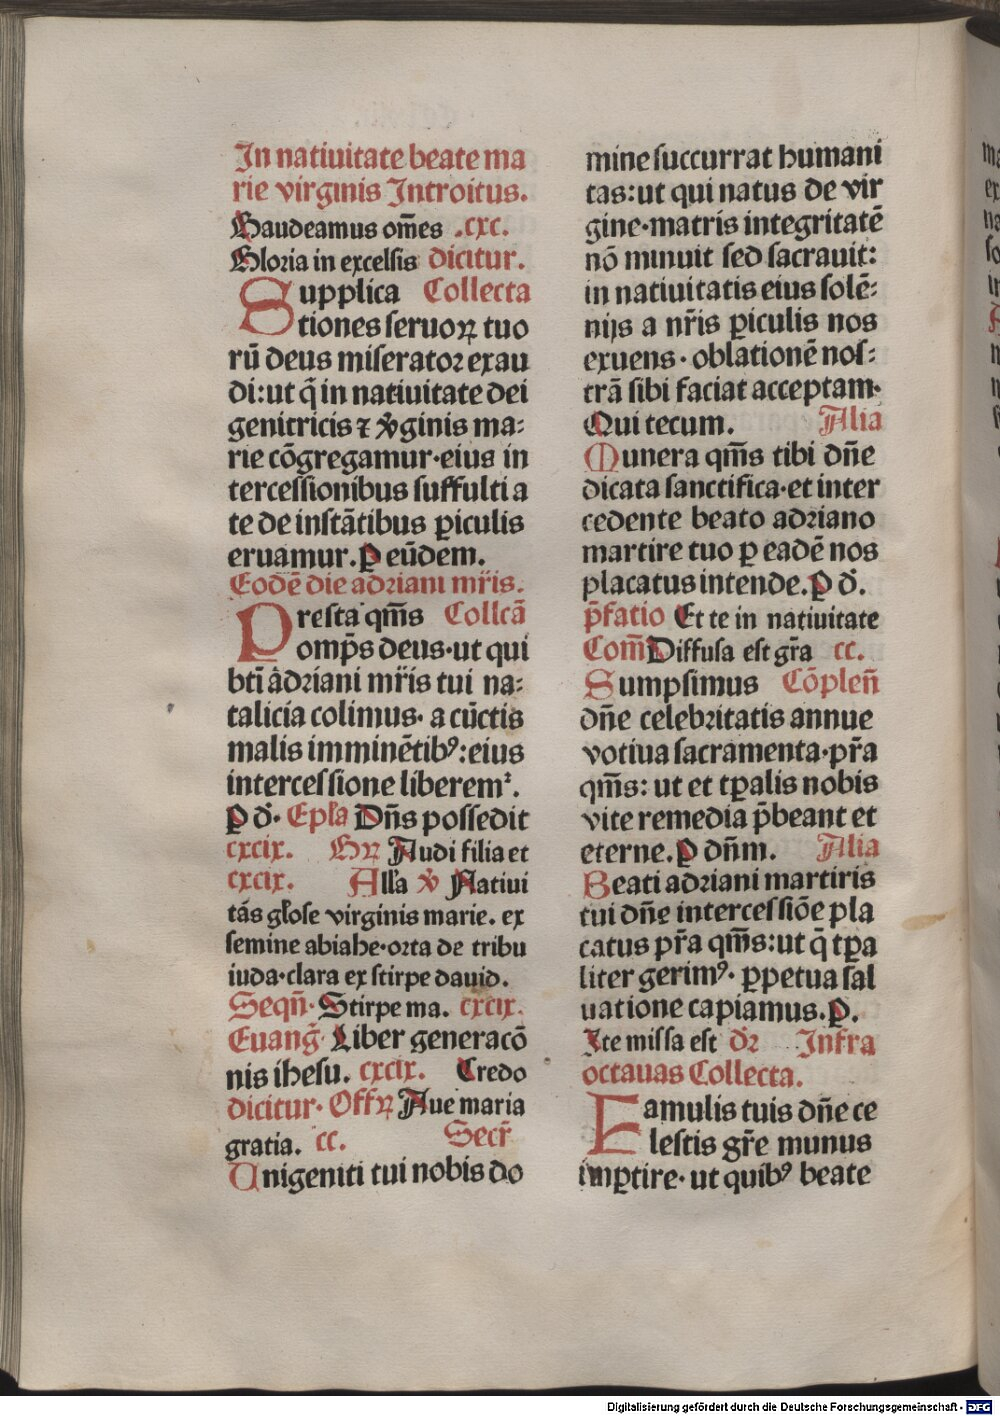 In natiuitate beate ma
rie virginis Introitus.
Gaudeamus om̄es .cxc.
Gloria in excelsis dicitur.
Supplica Collecta
tiones seruoꝝ tuo
rū deus miseratoꝛ exau
di:ut q̄ in natiuitate dei
genitricis ⁊ v̓ginis ma⸗
rie cōgregamur·eius in
tercessionibus suffulti a
te de instātibus ꝑiculis
eruamur.ꝑ eūdem.
Eodē die adriani mr̄is.
Presta qm̄s Collcā
omp̄s deus·ut qui
bti̅ adꝛiani mr̄is tui na⸗
talicia colimus· a cūctis
malis imminētibꝰ:eius
intercessione liberemᷣ.
ꝑ d̄. Epl̄a Dn̄s possedit
cxcix. Gꝝ Audi filia et
cxcix. All̓a v̓ Natiui
tās gl̓ose virginis marie. ex
semine abiahe·oꝛta de tribu
iuda·clara ex stirpe dauid.
Seqn̄· Stirpe ma. cxcix.
Euang̓ Liber generacō
nis ihesu. cxcix. Credo
dicitur· Offꝝ Aue maria
gratia. cc. Secr̄
Unigeniti tui nobis do
mine succurrat humani
tas:ut qui natus de vir
gine·matris integritatē
nō minuit sed sacrauit:
in natiuitatis eius solē⸗
nijs a nr̄is ꝑiculis nos
exuens· oblationē nos⸗
trā sibi faciat acceptam·
Qui tecum. Alia
Munera qm̄s tibi dn̄e
dicata sanctifica·et inter
cedente beato adꝛiano
martire tuo ꝑ eadē nos
placatus intende.ꝑ d̄.
p̄fatio Et te in natiuitate
Com̄ Diffusa est gr̄a cc.
Sumpsimus Cōplen̄
dn̄e celebꝛitatis annue
votiua sacramenta·pr̄a
qm̄s: ut et tꝑalis nobis
vite remedia p̄beant et
eterne.ꝑ dn̄m. Alia
Beati adꝛiani martiris
tui dn̄e intercessiōe pla
catus pr̄a qm̄s:ut q̄ tꝑa
liter gerimꝰ· ꝑpetua sal
uatione capiamus.ꝑ.
Ite missa est dr̄ Infra
octauas Collecta.
Famulis tuis dn̄e ce
lestis gr̄e munus
imꝑtire· ut quibꝰ beate
Digitalisierung gefördert durch die Deutsche Forschungsgemeinschaft - DFG